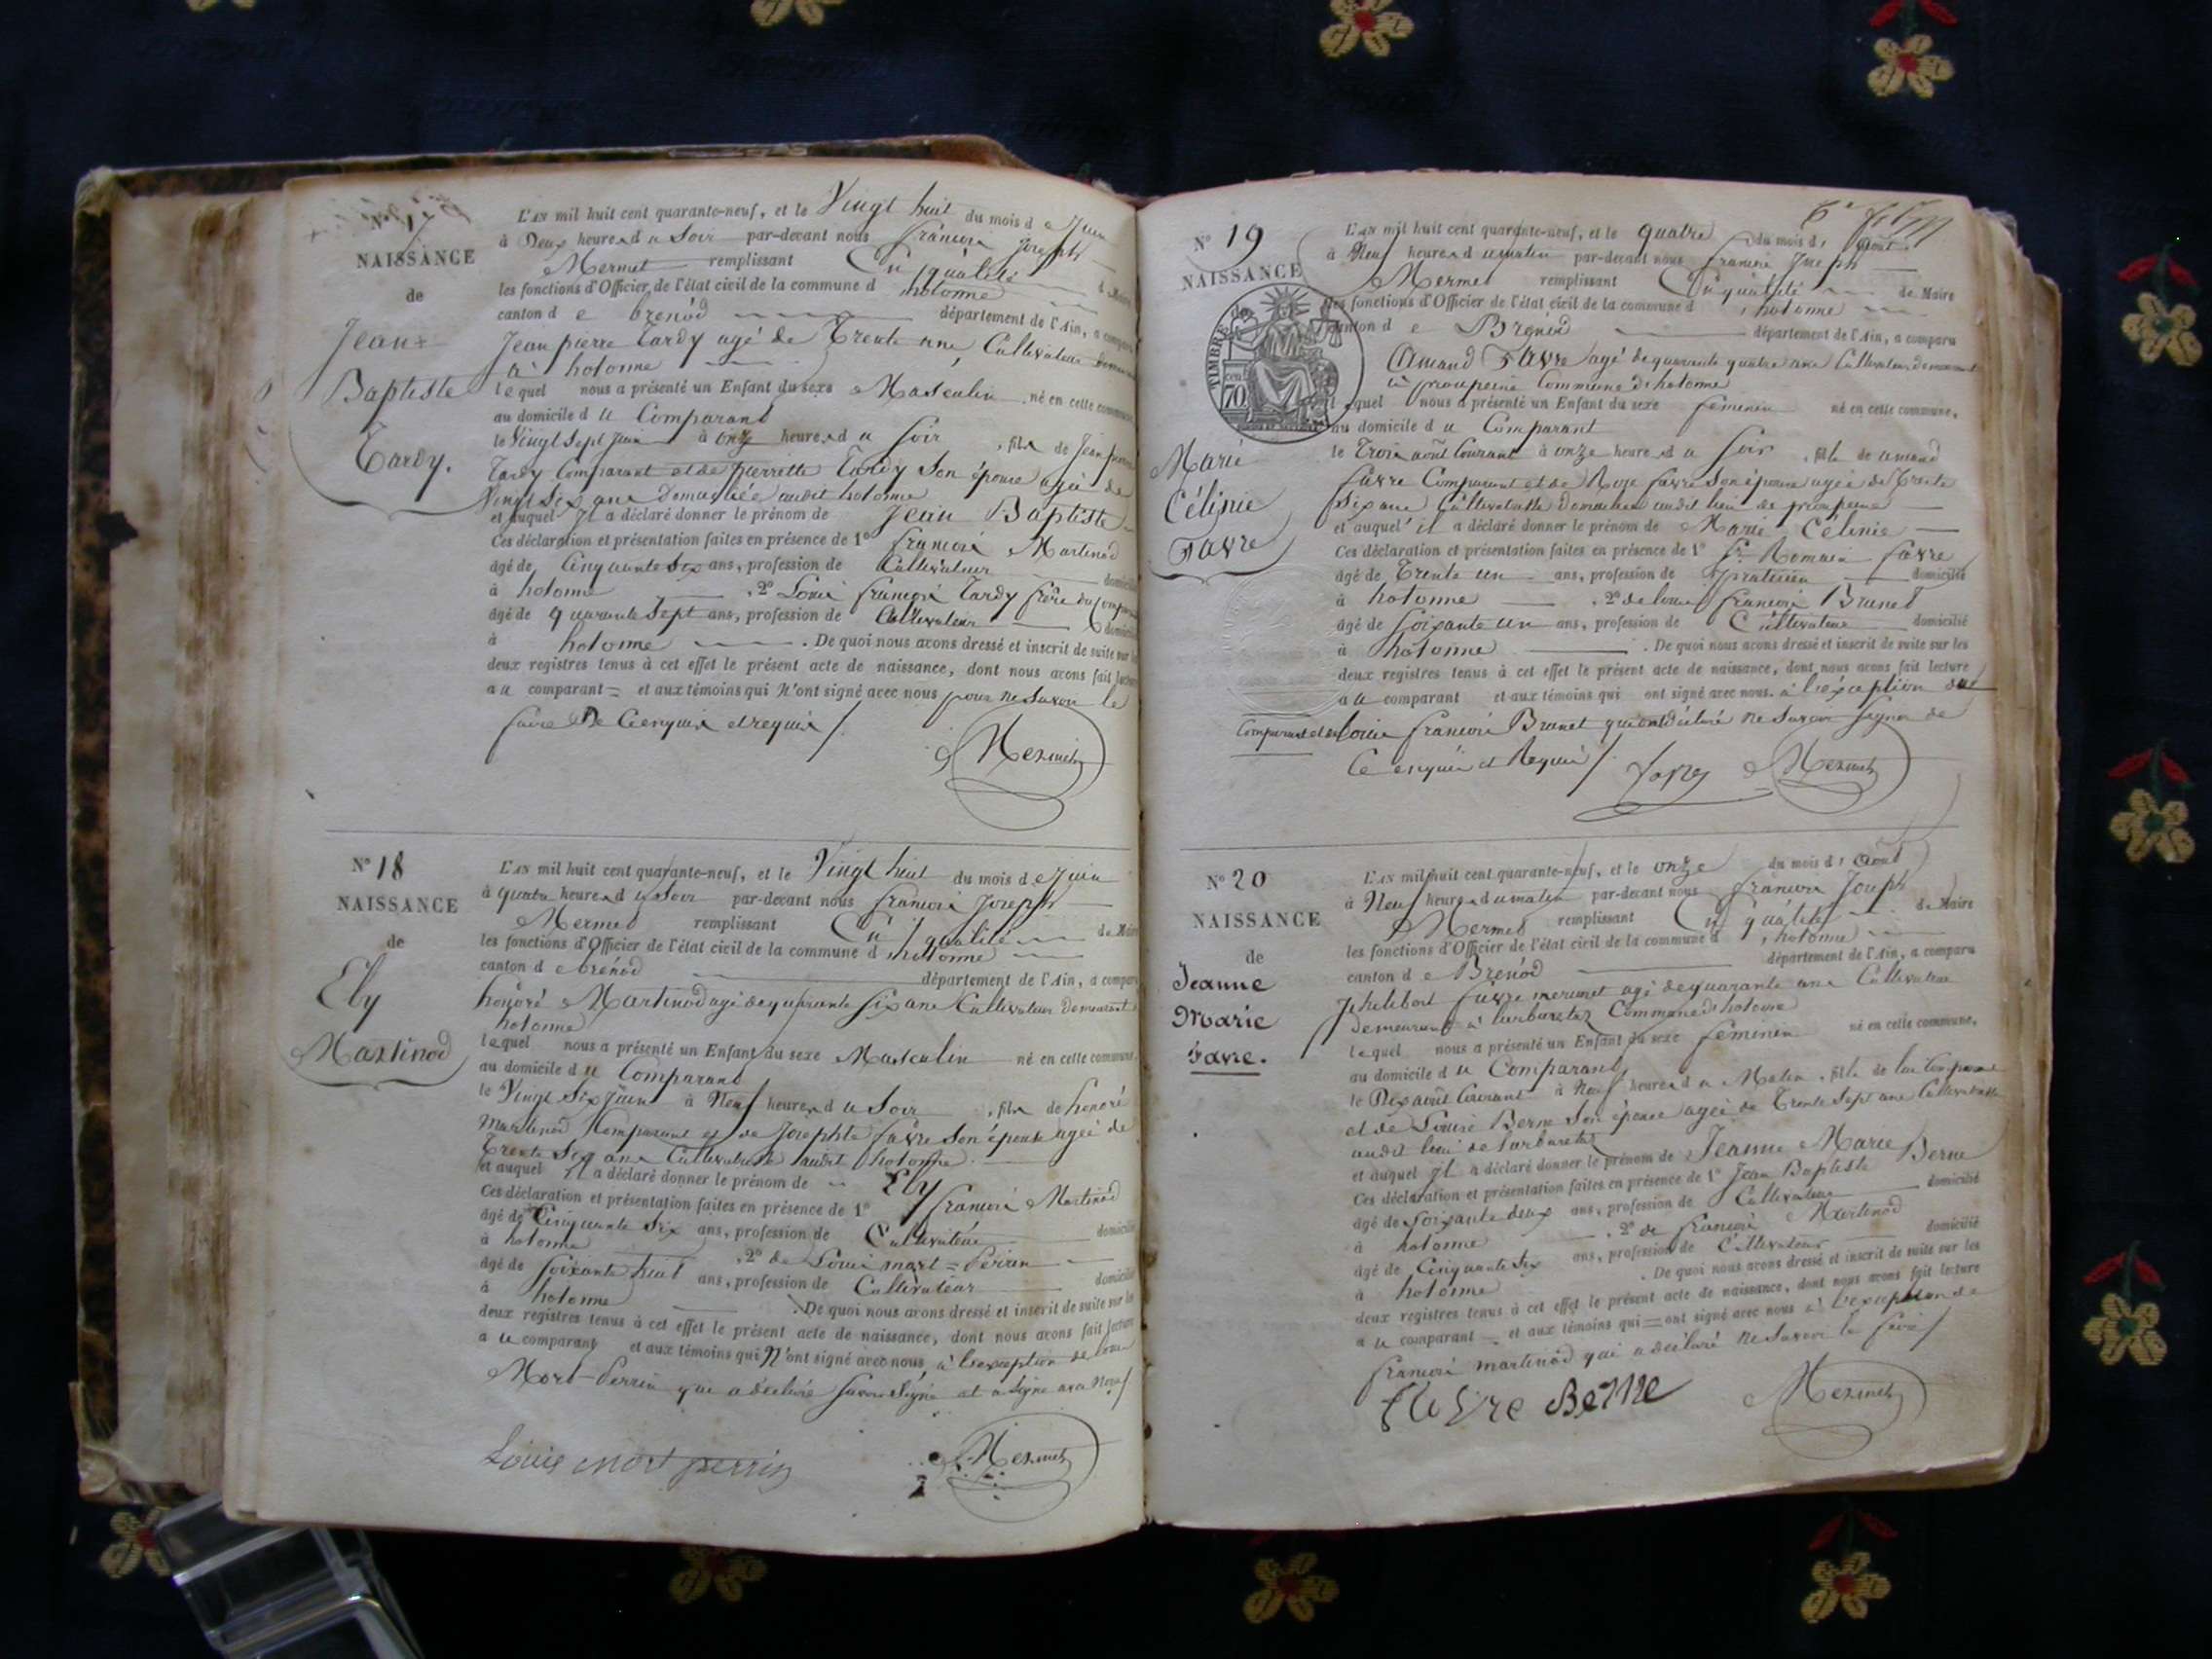 N° 17
NAISSANCE
de
Jean
Baptiste
Tardy.
L'AN mil huit cent quarante-neuf, et le Vingt huit du mois de Juin
à Deux heures du Soir par-devant nous françois Joseph
Mermet remplissant En qualité de Maire
les fonctions d'Officier de l'état civil de la commune d hotonne
canton de brénod département de l'Ain, a comparu
Jean pierre Tardy agé de Trente ans, Cultivateur
à hotonne
lequel nous a présenté un Enfant du sexe Masculin né en cette commune
au domicile du Comparant
le Vingt Sept Juin à onze heures du Soir, fils de Jean pierre
Tardy Comparant et de pierrette Tardy Son épouse agée de
Vingt Six ans Domiciliée audit hotonne
et auquel Il a déclaré donner le prénom de Jean Baptiste
Ces déclaration et présentation faites en présence de 1° françois Martinod
âgé de Cinquante Six ans, profession de Cultivateur domicilié
à hotonne . 2° Louis françois Tardy frère du Comparant
âgé de quarante Sept ans, profession de Cultivateur domicilié
à hotonne . De quoi nous avons dressé et inscrit de suite sur les
deux registres tenus à cet effet le présent acte de naissance, dont nous avons fait lecture
au comparant = et aux témoins qui N'ont signé avec nous pour ne Savoir le
faire De Ce enquis et requis /.
Mermet
N° 18
NAISSANCE
de
Ely
Martinod
L'AN mil huit cent quarante-neuf, et le Vingt huit du mois de Juin
à quatre heures du Soir par-devant nous françois Joseph
Mermet remplissant En qualité de Maire
les fonctions d'Officier de l'état civil de la commune d hotonne
canton de brénod département de l'Ain, a comparu
honoré Martinod agé de quarante Six ans Cultivateur Demeurant à
hotonne
lequel nous a présenté un Enfant du sexe Masculin né en cette commune.
au domicile du Comparant
le Vingt Six Juin à Neuf heures du Soir, fils de honoré
Martinod Comparant et de Josephte favre Son épouse agée de
Trente Six ans Cultivatrice audit hotonne.
et auquel Il a déclaré donner le prénom de Ely
Ces déclaration et présentation faites en présence de 1° françois Martinod
âgé de Cinquante Six ans, profession de Cultivateur domicilié
à hotonne . 2° de Louis mort=Perrin
âgé de Soixante huit ans, profession de Cultivateur domicilié
à hotonne . De quoi nous avons dressé et inscrit de suite sur les
deux registres tenus à cet effet le présent acte de naissance, dont nous avons fait lecture
au comparant et aux témoins qui N'ont signé avec nous, à l'exception de Louis
Mort-Perrin qui a déclaré Savoir Signé et a Signé avec Nous /
Louis mort perrin
Mermet
N° 19
NAISSANCE
TIMBRE
70
Marie
Célinie
Favre
L'AN mil huit cent quarante-neuf, et le quatre du mois d' Août
à Neuf heures du matin par-devant nous françois Joseph
Mermet remplissant En qualité de Maire
les fonctions d'Officier de l'état civil de la commune d' hotonne
canton de Brénod département de l'Ain, a comparu
Amand Favre agé de quarante quatre ans Cultivateur demeurant
à Commune de hotonne
lequel nous a présenté un Enfant du sexe féminin né en cette commune,
au domicile du Comparant
le Trois août Courant à onze heures du Soir, fille de amand
favre Comparant et de Roze favre Son épouse agée de Trente
Six ans Cultivatrice Domiciliée audit lieu de
et auquel il a déclaré donner le prénom de Marie Célinie
Ces déclaration et présentation faites en présence de 1° Romain favre
âgé de Trente un ans, profession de praticien domicilié
à hotonne . 2° de louis françois Brunet
âgé de Soixante un ans, profession de Cultivateur domicilié
à hotonne . De quoi nous avons dressé et inscrit de suite sur les
deux registres tenus à cet effet le présent acte de naissance, dont nous avons fait lecture
au comparant et aux témoins qui ont signé avec nous, à l'exception du
Comparant et de louis françois Brunet qui ont déclaré ne Savoir Signer de
Ce enquis et Requis /.
favre
Mermet
N° 20
NAISSANCE
de
Jeanne
Marie
Favre.
L'AN mil huit cent quarante-neuf, et le onze du mois d' Août
à Neuf heures du matin par-devant nous françois Joseph
Mermet remplissant En qualité de Maire
les fonctions d'Officier de l'état civil de la commune d' hotonne
canton de Brénod département de l'Ain, a comparu
favre mermet agé de quarante ans Cultivateur
demeurant à Commune de hotonne
lequel nous a présenté un Enfant du sexe féminin né en cette commune,
au domicile du Comparant
le Dix août Courant à Neuf heures du Matin, fille de lui Comparant
et de Louise Berne Son épouse agée de Trente Sept ans Cultivatrice
audit lieu de
et auquel Il a déclaré donner le prénom de Jeanne Marie
Ces déclaration et présentation faites en présence de 1° Jean Baptiste Berne
âgé de Soixante deux ans, profession de Cultivateur domicilié
à hotonne . 2° de françois Martinod
âgé de Cinquante Six ans, profession de Cultivateur domicilié
à hotonne . De quoi nous avons dressé et inscrit de suite sur les
deux registres tenus à cet effet le présent acte de naissance, dont nous avons fait lecture
au comparant = et aux témoins qui = ont signé avec nous à l'exception de
françois martinod qui a déclaré ne Savoir le faire /
favre Berne
Mermet